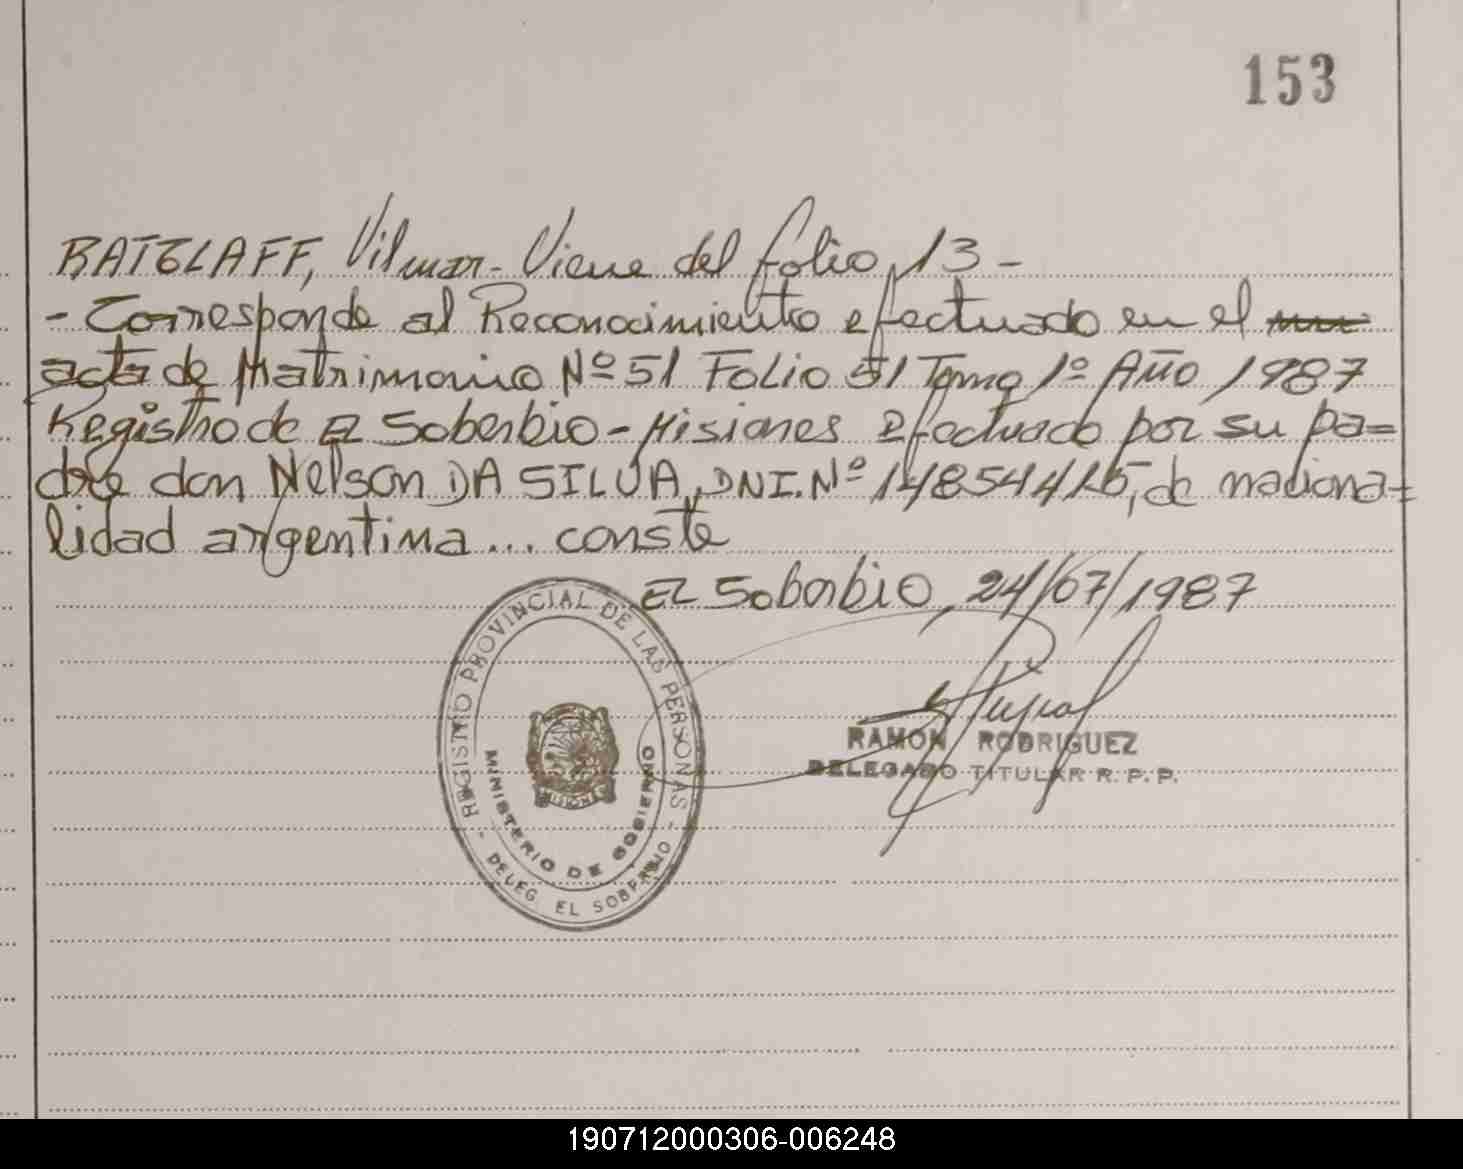 153
RATZLAFF, Vilmar - Viene del folio 13 -
- Corresponde al Reconocimiento efectuado en el
acta de Matrimonio Nº 51 Folio 51 Tomo 1º Año 1987
Registro de El Soberbio - Misiones efectuado por su pa=
dre don Nelson DA SILVA, DNI. Nº de naciona=
lidad argentina... conste
El Soberbio, 24/07/1987
REGISTRO PROVINCIAL DE LAS PERSONAS - DELEG. EL SOBERBIO -
MINISTERIO DE GOBIERNO
MISIONES
RAMON RODRIGUEZ
DELEGADO TITULAR R. P. P.
190712000306-006248